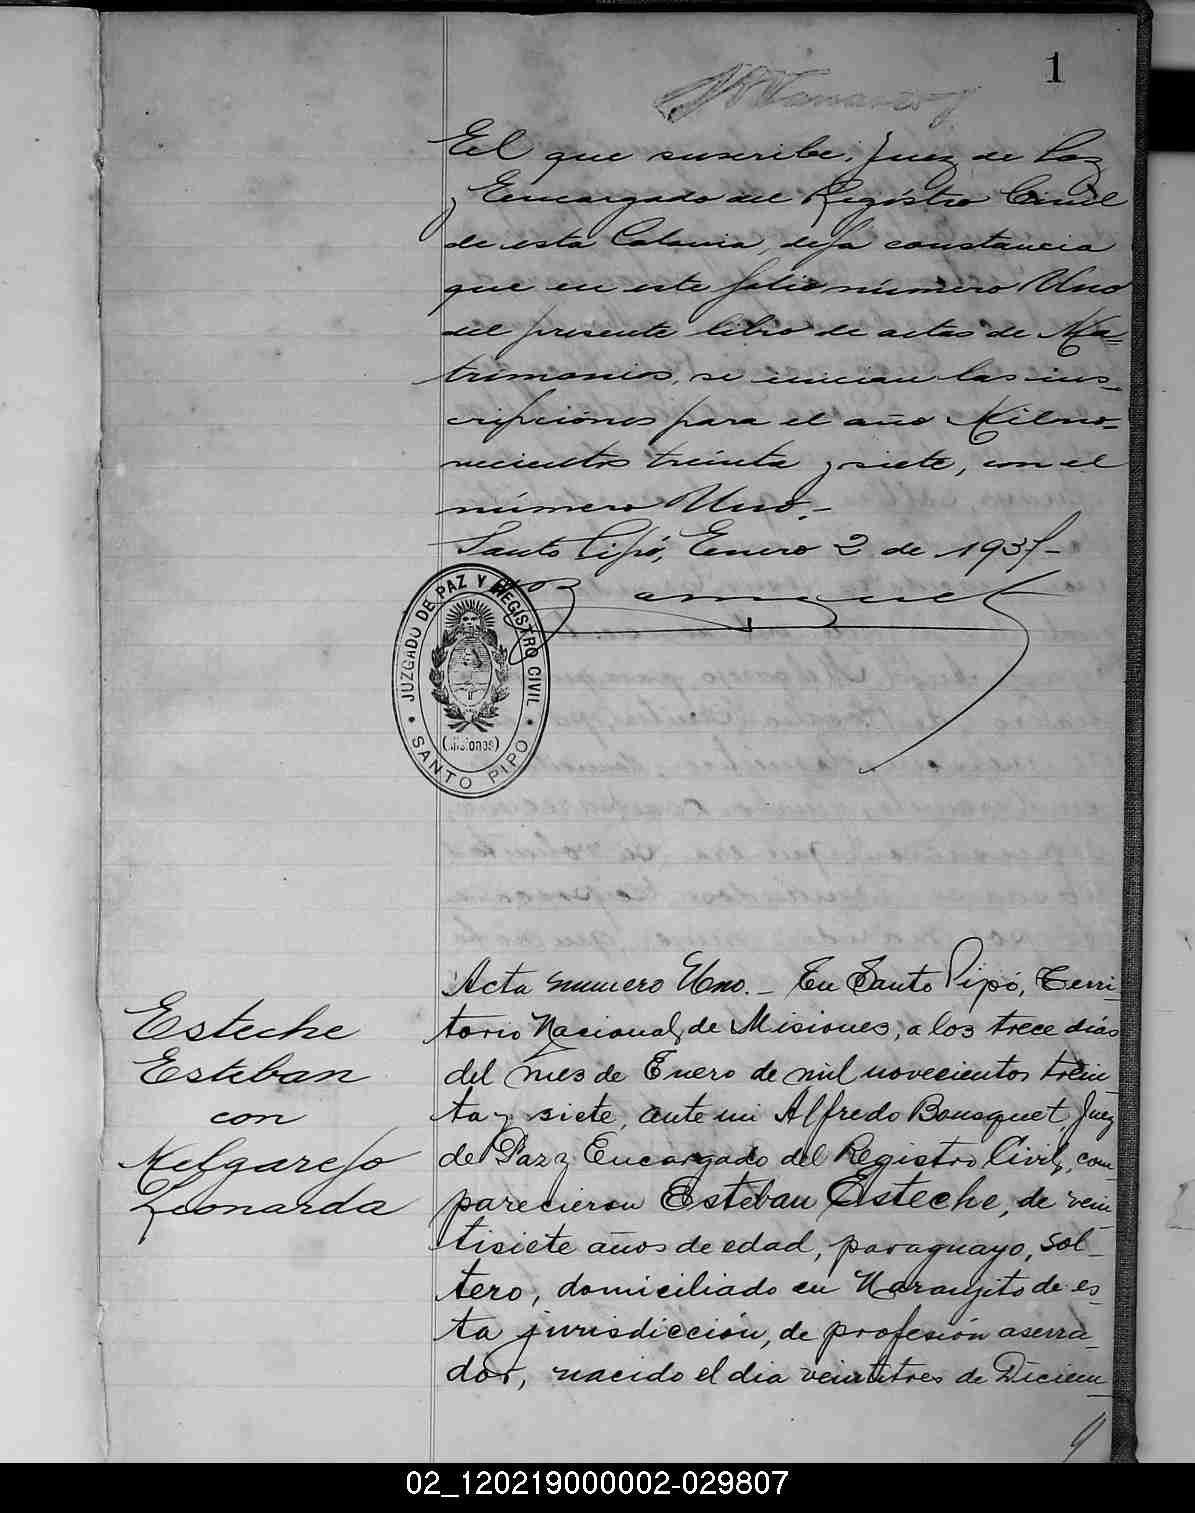 1
El que suscribe, Juez de Paz
y Encargado del Registro Civil
de esta Colonia, deja constancia
que en este folio número Uno
del presente libro de actas de Ma=
trimonios, se inician las ins_
cripciones para el año Milno=
vecientos treinta y siete, con el
número Uno._
Santo Pipó, Enero 2 de 1937_
JUZGADO DE PAZ Y REGISTRO CIVIL
(Misiones)
SANTO PIPO
Acta numero Uno._ En Santo Pipó, Terri_
torio Nacional de Misiones, a los trece días
del mes de Enero de mil novecientos trein_
ta y siete, ante mi Alfredo Bousquet, Juez
de Paz y Encargado del Registro Civil, com_
parecieron Esteban Esteche, de vein_
tisiete años de edad, paraguayo, sol_
tero, domiciliado en Naranjito de es_
ta jurisdicción, de profesión aserra_
dor, nacido el dia veintitres de Diciem_
Esteche
Esteban
con
Melgarejo
Leonarda
02_120219000002-029807